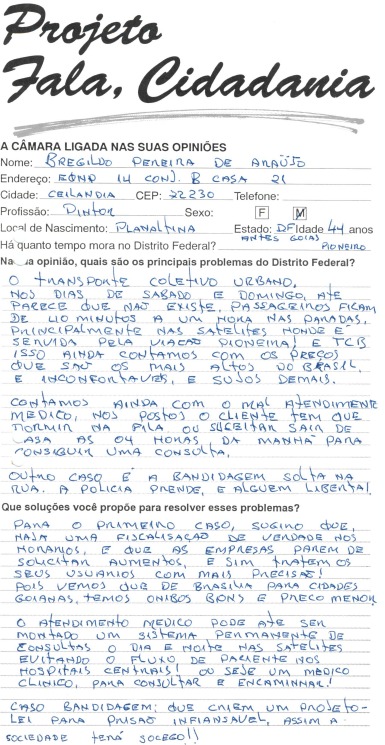 Projeto
Fala, Cidadania
A CÂMARA LIGADA NAS SUAS OPINIÕES
Nome: BREGILDO PEREIRA DE ARAÚJO
Endereço: EQNO 14 CONJ. B CASA 21
Cidade: CEILANDIA CEP: 72230 Telefone:
Profissão: PINTOR Sexo: F M
Local de Nascimento: PLANALTINA Estado: DF Idade 44 anos
ANTES GOIAS
Há quanto tempo mora no Distrito Federal? PIONEIRO
Na sua opinião, quais são os principais problemas do Distrito Federal?
O TRANSPORTE COLETIVO URBANO,
NOS DIAS DE SABADO E DOMINGO, ATE
PARECE QUE NÃO EXISTE, PASSAGEIROS FICAM
DE 40 MINUTOS A UM HORA NAS PARADAS,
PRINCIPALMENTE NAS SATELITES HONDE É
SERVIDA PELA VIAÇÃO PIONEIRA! E TCB
ISSO AINDA CONTAMOS COM OS PREÇOS
QUE SÃO OS MAIS ALTOS DO BRASIL,
E INCONFORTAVES, E SUJOS DEMAIS.
CONTAMOS AINDA COM O MAL ATENDIMENTE
MEDICO, NOS POSTOS O CLIENTE TEM QUE
DORMIR NA FILA OU SUGEITAR SAIR DE
CASA AS 04 HORAS DA MANHÃ PARA
CONSIGUIR UMA CONSULTA.
OUTRO CASO É A BANDIDAGEM SOLTA NA
RUA. A POLICIA PRENDE, E ALGUEM LIBERTA!
Que soluções você propõe para resolver esses problemas?
PARA O PRIMEIRO CASO, SUGIRO QUE,
HAJA UMA FISCALISAÇÃO DE VERDADE NOS
HORARIOS, E QUE AS EMPRESAS PAREM DE
SOLICITAR AUMENTOS, E SIM TRATEM OS
SEUS USUARIOS COM MAIS PRECISÃO!
POIS VEMOS QUE DE BRASILIA PARA CIDADES
GOIANAS, TEMOS ONIBOS BONS E PREÇO MENOR
O ATENDIMENTO MEDICO PODE ATE SER
MONTADO UM SISTEMA PERMANENTE DE
CONSULTAS O DIA E NOITE NAS SATELITES
EVITANDO O FLUXO, DE PACIENTE NOS
HOSPITAIS CENTRAIS! OU SEJE UM MEDICO
CLINICO, PARA CONSULTAR E ENCAMINHAR!
CASO BANDIDAGEM: QUE CRIEM UM PROJETO-
LEI PARA PRISÃO INFIANSAVEL, ASSIM A
SOCIEDADE TERÁ SOCEGO!!